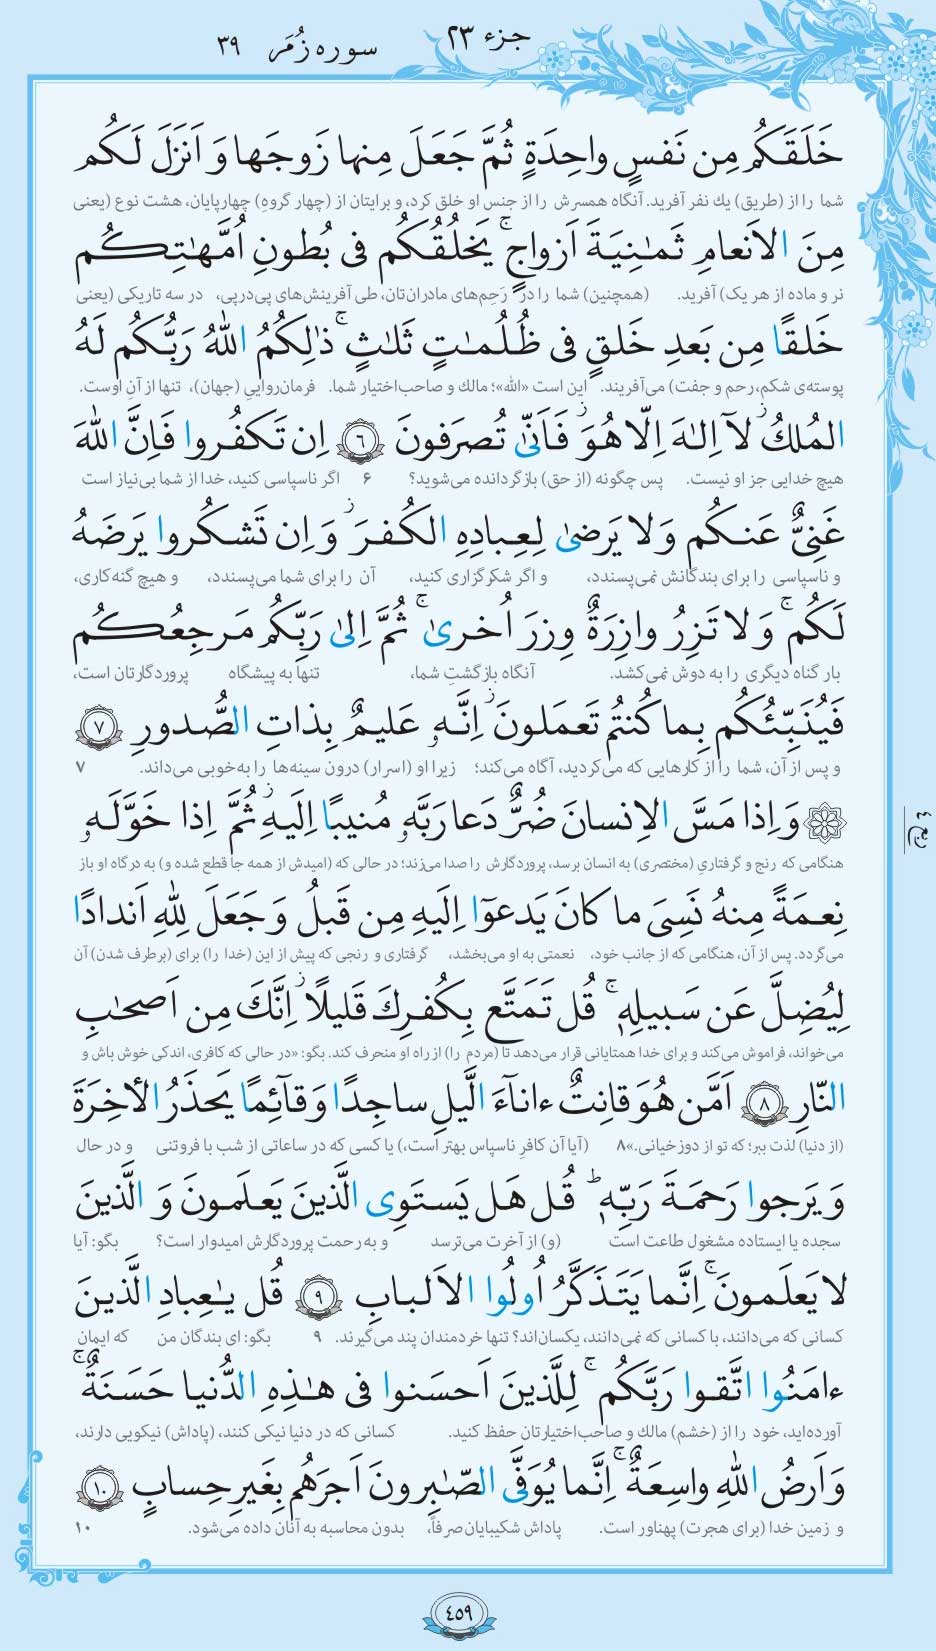 جزء ٢٣ سوره زُمَر ٣٩
خَلَقَكُم مِن نَفسٍ واحِدَةٍ ثُمَّ جَعَلَ مِنها زَوجَها وَ اَنزَلَ لَكُم
شما را از (طریق) یك نفر آفرید. آنگاه همسرش را از جنس او خلق کرد، و برایتان از (چهار گروهِ) چهارپایان، هشت نوع (یعنی
مِنَ الاَنعامِ ثَمـٰنِيَةَ اَزواجٍ ۚ يَخلُقُكُم فى بُطونِ اُمَّهـٰتِكُم
نر و ماده از هر یک) آفرید. (همچنین) شما را در رَحِم‌های مادران‌تان، طی آفرینش‌های پی‌درپی، در سه تاریکی (یعنی
خَلقًا مِن بَعدِ خَلقٍ فى ظُلُمـٰتٍ ثَلاثٍ ۚ ذٰلِكُمُ اللّٰهُ رَبُّكُم لَهُ
پوسته‌ی شکم، رحم و جفت) می‌آفریند. این است «الله»؛ مالك و صاحب‌اختیار شما. فرمان‌روایی (جهان)، تنها از آنِ اوست.
المُلكُ ۖ لآ اِلـٰهَ اِلّا هُوَ ۖ فَاَنّىٰ تُصرَفونَ ﴿٦﴾ اِن تَكفُروا فَاِنَّ اللّٰهَ
هیچ خدایی جز او نیست. پس چگونه (از حق) بازگردانده می‌شوید؟ ۶ اگر ناسپاسی کنید، خدا از شما بی‌نیاز است
غَنِىٌّ عَنكُم وَ لا يَرضىٰ لِعِبادِهِ الكُفرَ ۖ وَ اِن تَشكُروا يَرضَهُ
و ناسپاسی را برای بندگانش نمی‌پسندد، و اگر شکرگزاری کنید، آن را برای شما می‌پسندد، و هیچ گنه‌کاری،
لَكُم ۗ وَ لا تَزِرُ وازِرَةٌ وِزرَ اُخرىٰ ۗ ثُمَّ اِلىٰ رَبِّكُم مَرجِعُكُم
بار گناه دیگری را به دوش نمی‌کشد. آنگاه بازگشتِ شما، تنها به پیشگاه پروردگارتان است،
فَيُنَبِّئُكُم بِما كُنتُم تَعمَلونَ ۚ اِنَّهو عَليمٌ بِذاتِ الصُّدورِ ﴿٧﴾
و پس از آن، شما را از کارهایی که می‌کردید، آگاه می‌کند؛ زیرا او (اسرار) درون سینه‌ها را به‌خوبی می‌داند. ۷
۞ وَ اِذا مَسَّ الاِنسانَ ضُرٌّ دَعا رَبَّهو مُنيبًا اِلَيهِ ثُمَّ اِذا خَوَّلَهو
هنگامی که رنج و گرفتاریِ (مختصری) به انسان برسد، پروردگارش را صدا می‌زند؛ در حالی که (امیدش از همه جا قطع شده و) به درگاه او باز
نِعمَةً مِنهُ نَسِىَ ما كانَ يَدعوٓا اِلَيهِ مِن قَبلُ وَ جَعَلَ لِلّٰهِ اَندادًا
می‌گردد. پس از آن، هنگامی که از جانب خود، نعمتی به او می‌بخشد، گرفتاری و رنجی که پیش از این (خدا را) برای (برطرف شدن) آن
لِيُضِلَّ عَن سَبيلِهٖ ۚ قُل تَمَتَّع بِكُفرِكَ قَليلًا ۖ اِنَّكَ مِن اَصحـٰبِ
می‌خواند، فراموش می‌کند و برای خدا همتایانی قرار می‌دهد تا (مردم را) از راه او منحرف کند. بگو: «در حالی که کافری، اندکی خوش باش و
النّارِ ﴿٨﴾ اَمَّن هُوَ قانِتٌ ءانآءَ الَّيلِ ساجِدًا وَ قآئِمًا يَحذَرُ الأخِرَةَ
(از دنیا) لذت ببر؛ که تو از دوزخیانی.» ۸ (آیا آن کافرِ ناسپاس بهتر است،) یا کسی که در ساعاتی از شب با فروتنی و در حال
وَ يَرجوا رَحمَةَ رَبِّهٖ ۗ قُل هَل يَستَوِى الَّذينَ يَعلَمونَ وَ الَّذينَ
سجده یا ایستاده مشغول طاعت است (و) از آخرت می‌ترسد و به رحمت پروردگارش امیدوار است؟ بگو: آیا
لا يَعلَمونَ ۗ اِنَّما يَتَذَكَّرُ اُولُوا الاَلبابِ ﴿٩﴾ قُل يـٰعِبادِ الَّذينَ
کسانی که می‌دانند، با کسانی که نمی‌دانند، یکسان‌اند؟ تنها خردمندان پند می‌گیرند. ۹ بگو: ای بندگان من که ایمان
ءامَنُوا اتَّقوا رَبَّكُم ۚ لِلَّذينَ اَحسَنوا فى هـٰذِهِ الدُّنيا حَسَنَةٌ ۗ
آورده‌اید، خود را از (خشم) مالك و صاحب‌اختیارتان حفظ کنید. کسانی که در دنیا نیکی کنند، (پاداش) نیکویی دارند،
وَ اَرضُ اللّٰهِ واسِعَةٌ ۗ اِنَّما يُوَفَّى الصّـٰبِرونَ اَجرَهُم بِغَيرِ حِسابٍ ﴿١٠﴾
و زمین خدا (برای هجرت) پهناور است. پاداش شکیبایان صرفاً، بدون محاسبه به آنان داده می‌شود. ۱۰
ربع ٤
٤٥٩